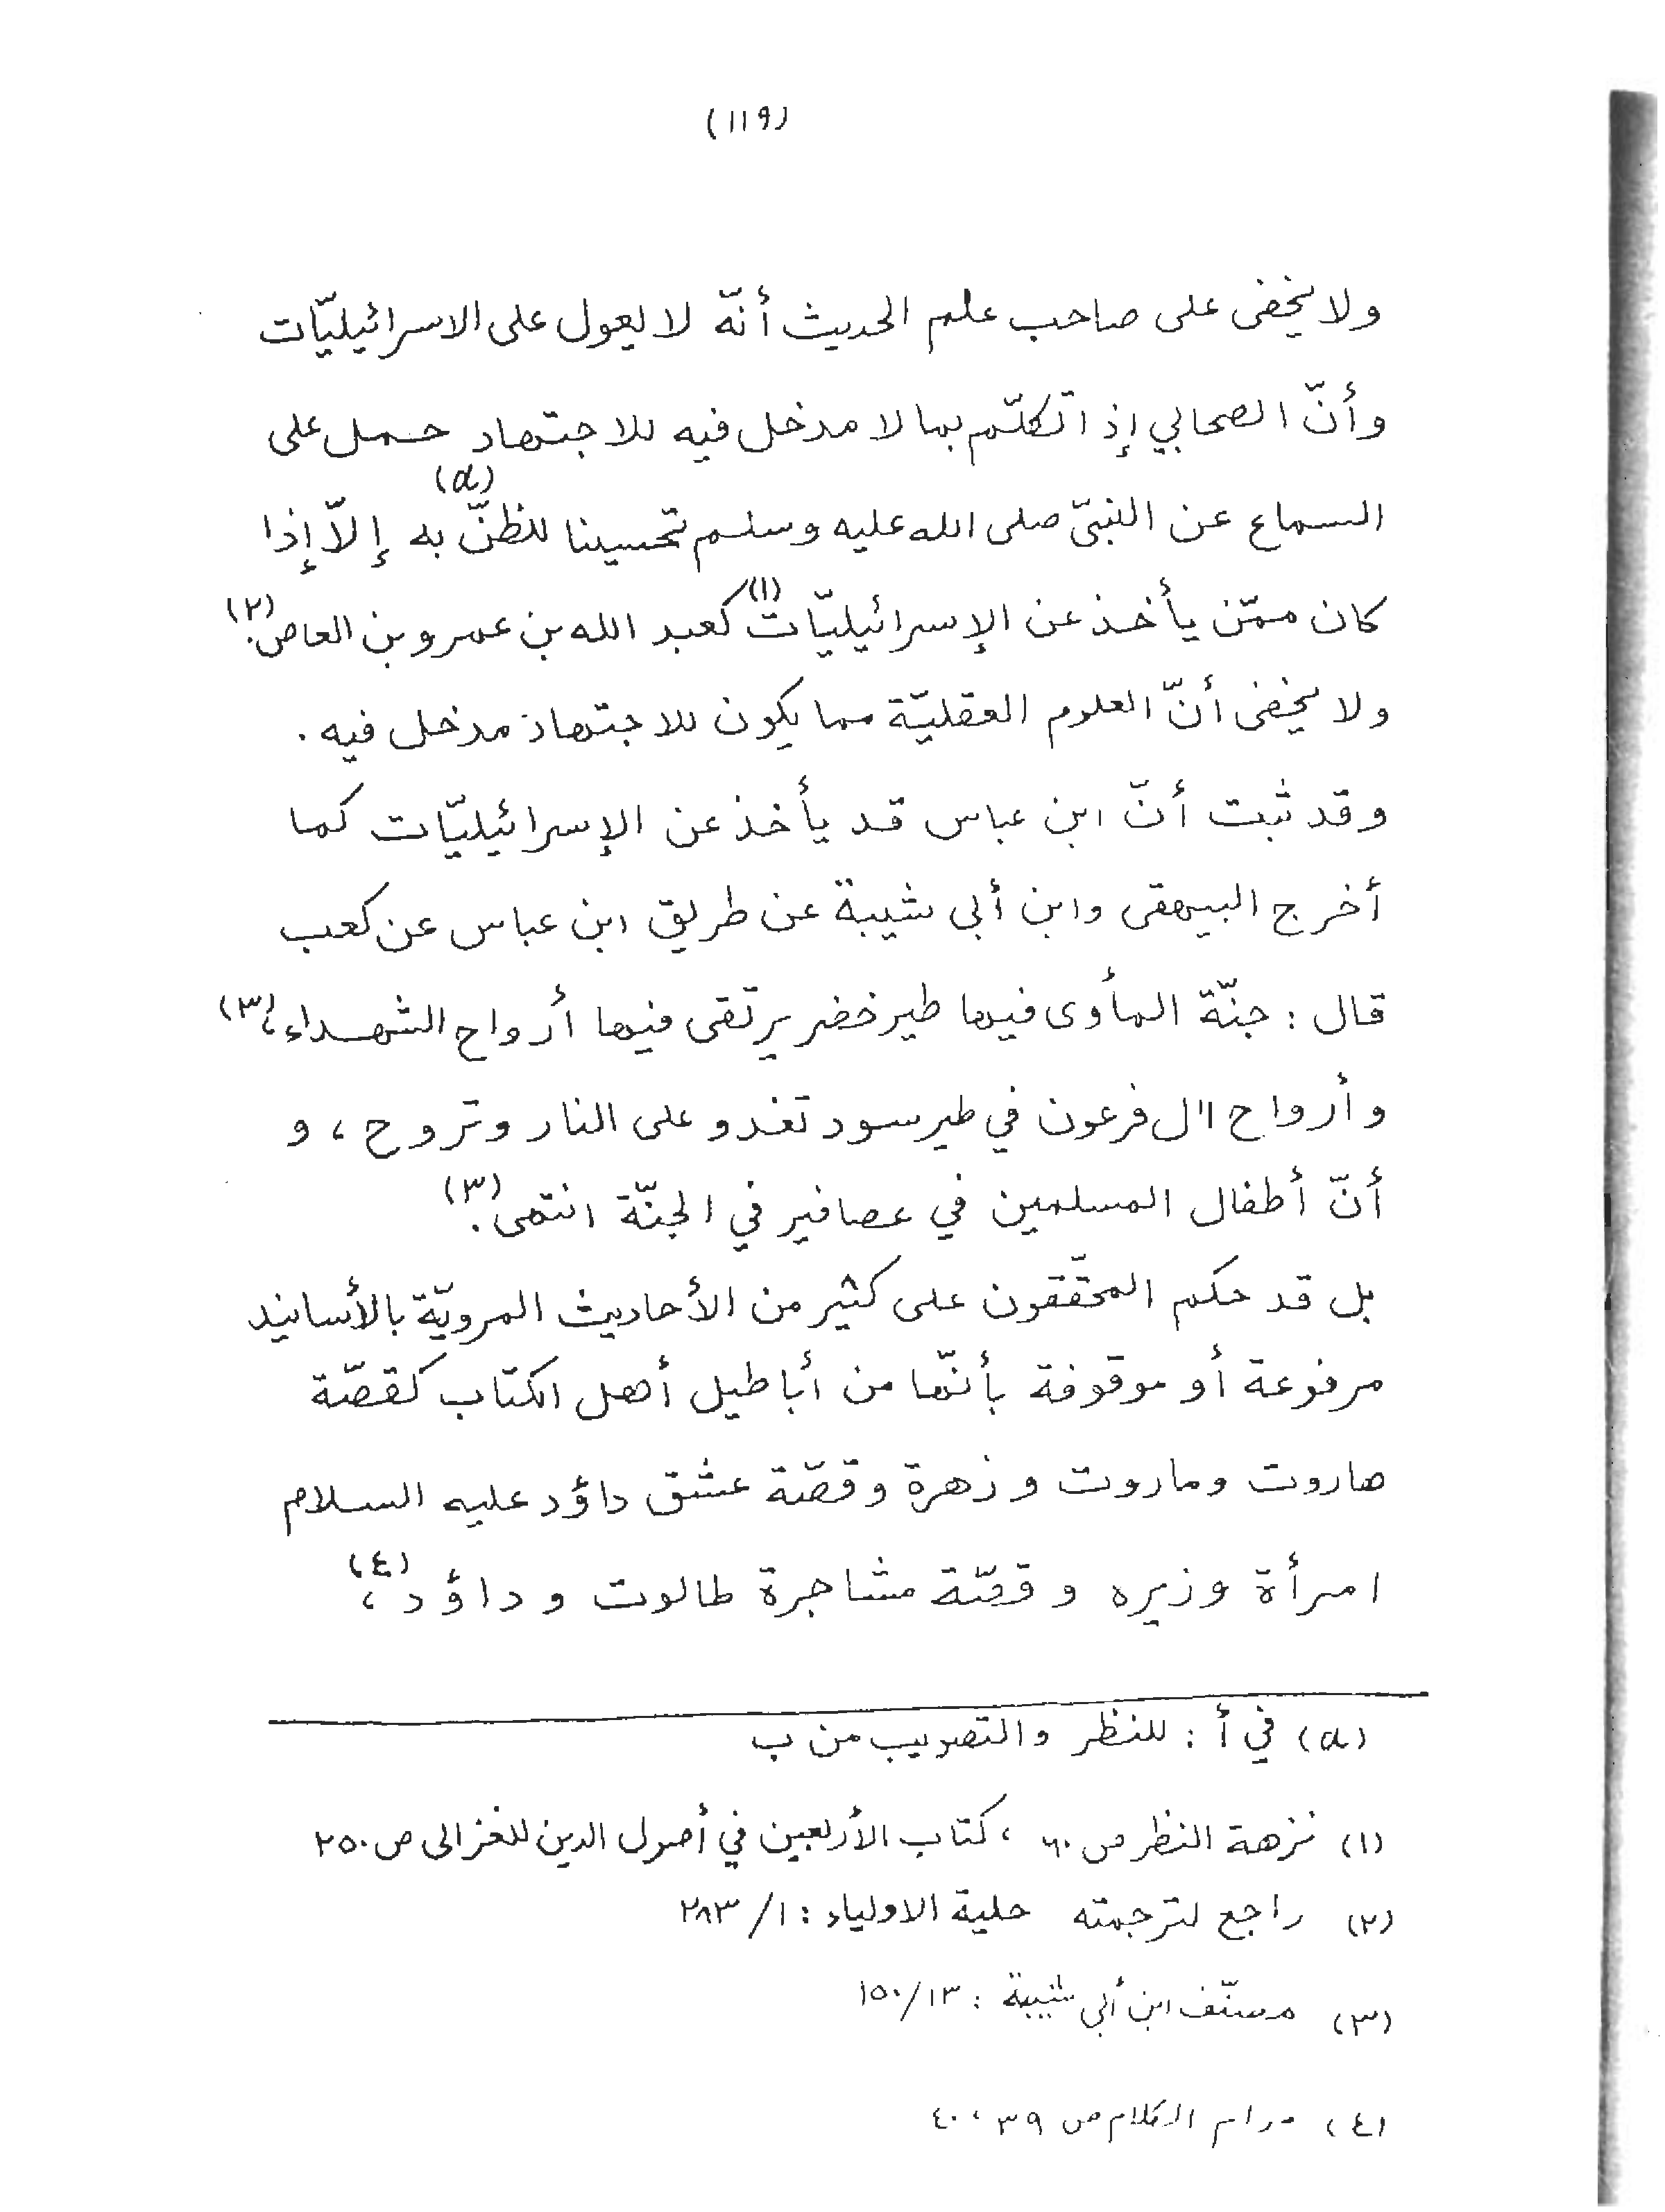 (١١٩)
ولا يخفى على صاحب علم الحديث أنّه لا يعول على الاسرائيليّات
وأنّ الصحابي إذا تكلّم بما لا مدخل فيه للاجتهاد حمل على
السماع عن النبيّ صلى الله عليه وسلم تحسينا للظنّ (a) به إلاّ إذا
كان ممّن يأخذ عن الإسرائيليّات (١) كعبد الله بن عمرو بن العاص. (٢)
ولا يخفى أنّ العلوم العقليّة مما يكون للاجتهاد مدخل فيه .
وقد ثبت أنّ ابن عباس قد يأخذ عن الإسرائيليّات كما
أخرج البيهقى وابن أبى شيبة عن طريق ابن عباس عن كعب
قال : جنّة المأوى فيها طير خضر يرتقى فيها أرواح الشهداء، (٣)
وأرواح اٰل فرعون في طير سود تغدو على النار وتروح ، و
أنّ أطفال المسلمين في عصافير في الجنّة انتهى. (٣)
بل قد حكم المحقّقون على كثير من الأحاديث المرويّة بالأسانيد
مرفوعة أو موقوفة بأنّها من أباطيل أهل الكتاب كقصّة
هاروت وماروت وزهرة وقصّة عشق داؤد عليه السلام
امرأة وزيره وقصّة مشاجرة طالوت وداؤد ، (٤)
(a) في أ : للنظر والتصويب من ب
(١) نزهة النظر ص ٦٠ ، كتاب الأربعين في أصول الدين للغزالى ص ٢٥٠
(٢) راجع لترجمته حلية الاولياء : ١/ ٢٨٣
(٣) مصنّف ابن أبي شيبة : ١٣/ ١٥٠
(٤) مرام الكلام ص ٣٩ ، ٤٠